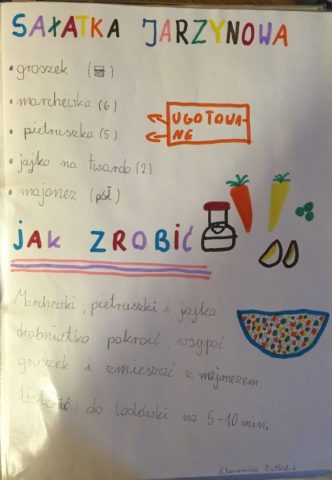 SAŁATKA JARZYNOWA
• groszek
• marchewka (6)
• pietruszka (5)
UGOTOWA-
NE
• jajko na twardo (2)
• majonez (pół)
JAK ZROBIĆ
Marchewki, pietruszki i jajka
drobniutko pokroić, wsypać
groszek i zmieszać z majonezem.
do lodówski na 5-10 min.